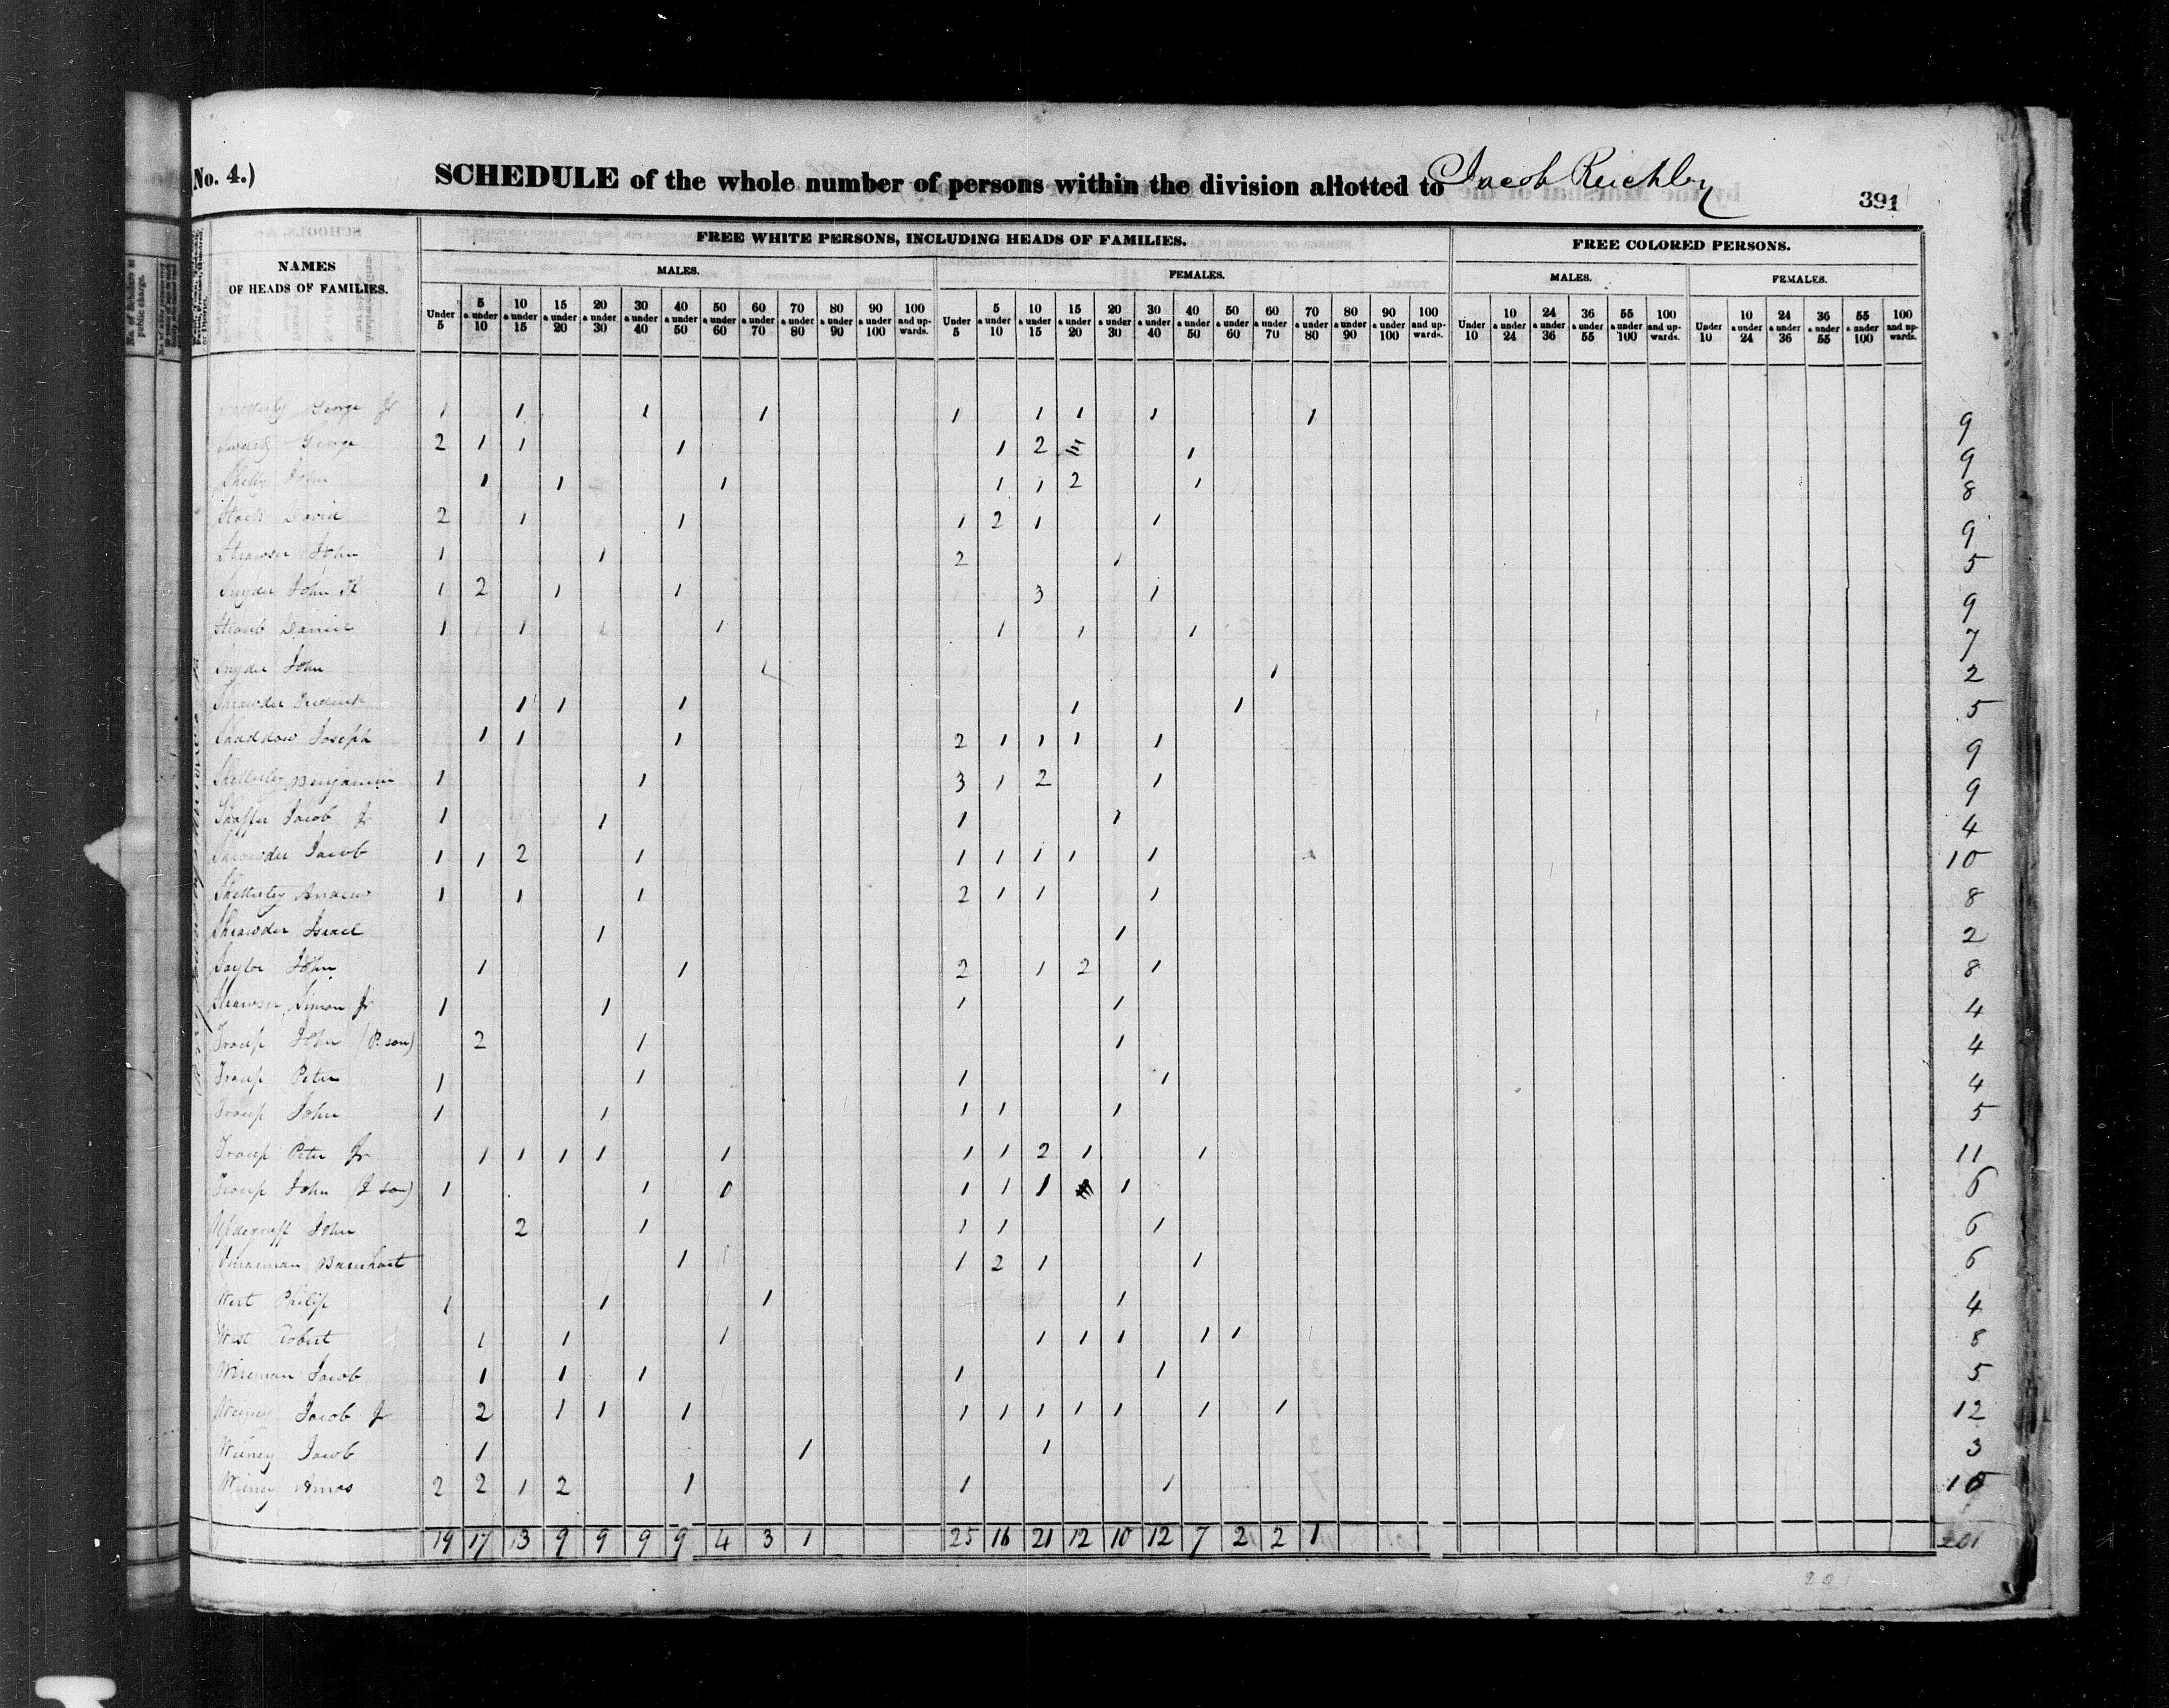 No. 4.)
SCHEDULE of the whole number of persons within the division allotted to Jacob Reichley
391
NAMES OF HEADS OF FAMILIES.
FREE WHITE PERSONS, INCLUDING HEADS OF FAMILIES.
FREE COLORED PERSONS.
MALES. FEMALES. MALES. FEMALES.
Under 5 5 & under 10 10 & under 15 15 & under 20 20 & under 30 30 & under 40 40 & under 50 50 & under 60 60 & under 70 70 & under 80 80 & under 90 90 & under 100 100 and upwards. Under 5 5 & under 10 10 & under 15 15 & under 20 20 & under 30 30 & under 40 40 & under 50 50 & under 60 60 & under 70 70 & under 80 80 & under 90 90 & under 100 100 and upwards. Under 10 10 & under 24 24 & under 36 36 & under 55 55 & under 100 100 and upwards. Under 10 10 & under 24 24 & under 36 36 & under 55 55 & under 100 100 and upwards.
George Jr 1 1 1 1 1 1 1 1 1 9
George 2 1 1 1 1 2 1 9
Shelly John 1 1 1 1 1 2 1 8
David 2 1 1 1 2 1 1 9
Strawser John 1 1 2 1 5
Snyder John 1 2 1 1 3 1 9
Straub Daniel 1 1 1 1 1 1 1 7
Snyder John 1 1 2
Shrawder Frederick 1 1 1 1 1 5
Shaddow Joseph 1 1 1 2 1 1 1 1 9
Shetterley Benjamin 1 1 3 1 2 1 9
Shaffer Jacob Jr 1 1 1 1 4
Shrawder Jacob 1 1 2 1 1 1 1 1 1 10
Shetterley Andrew 1 1 1 2 1 1 1 8
Shrawder Israel 1 1 2
Saylor John 1 1 2 1 2 1 8
Strawser Simon Jr 1 1 1 1 4
Troup John (P. son) 2 1 1 4
Troup Peter 1 1 1 1 4
Troup John 1 1 1 1 1 5
Troup Peter Jr 1 1 1 1 1 1 1 2 1 1 11
Troup John (J son) 1 1 0 1 1 1 1 6
Updegraff John 2 1 1 1 1 6
Barnhart 1 1 2 1 1 6
Wert Philip 1 1 1 1 4
West Robert 1 1 1 1 1 1 1 1 8
Wireman Jacob 1 1 1 1 1 5
Jacob Jr 2 1 1 1 1 1 1 1 1 1 1 12
Jacob 1 1 1 3
Amos 2 2 1 2 1 1 1 10
19 17 13 9 9 9 9 4 3 1 25 16 21 12 10 12 7 2 2 1 201
201